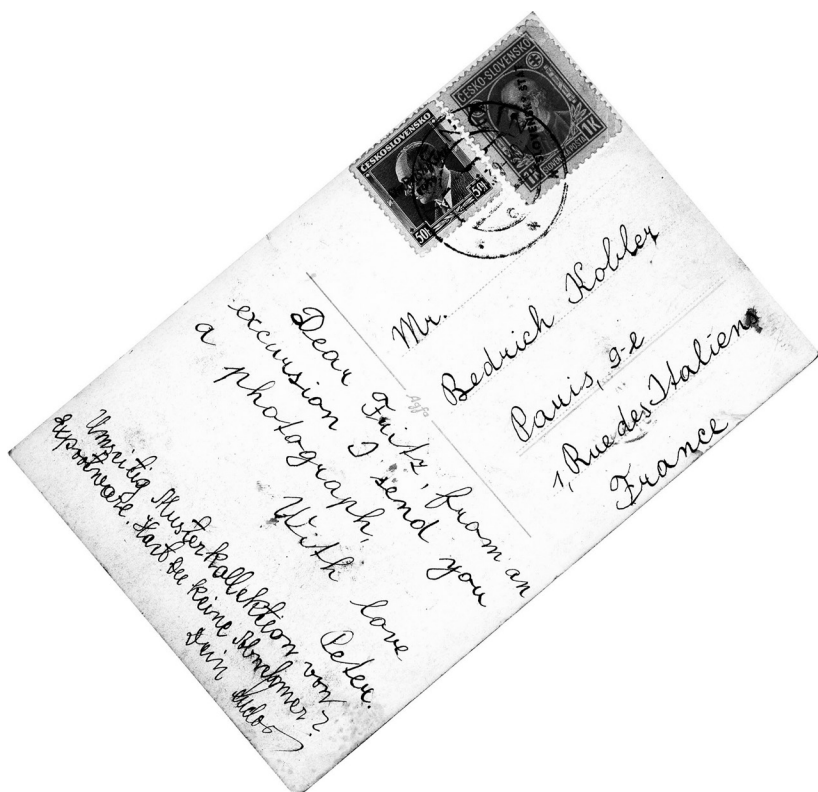 ČESKOSLOVENSKO
50h 50h
ČESKO-SLOVENSKO
1K
Mr.
Bedrich Kobler
Paris, 9-e
1, Rue des Italiens
France
Agfa
Dear Fritz, from an
excursion I send you
a photograph.
With love
Peter.
Umseitig Musterkollektion von
Exportware. Hast Du keine Abnehmer?
Dein